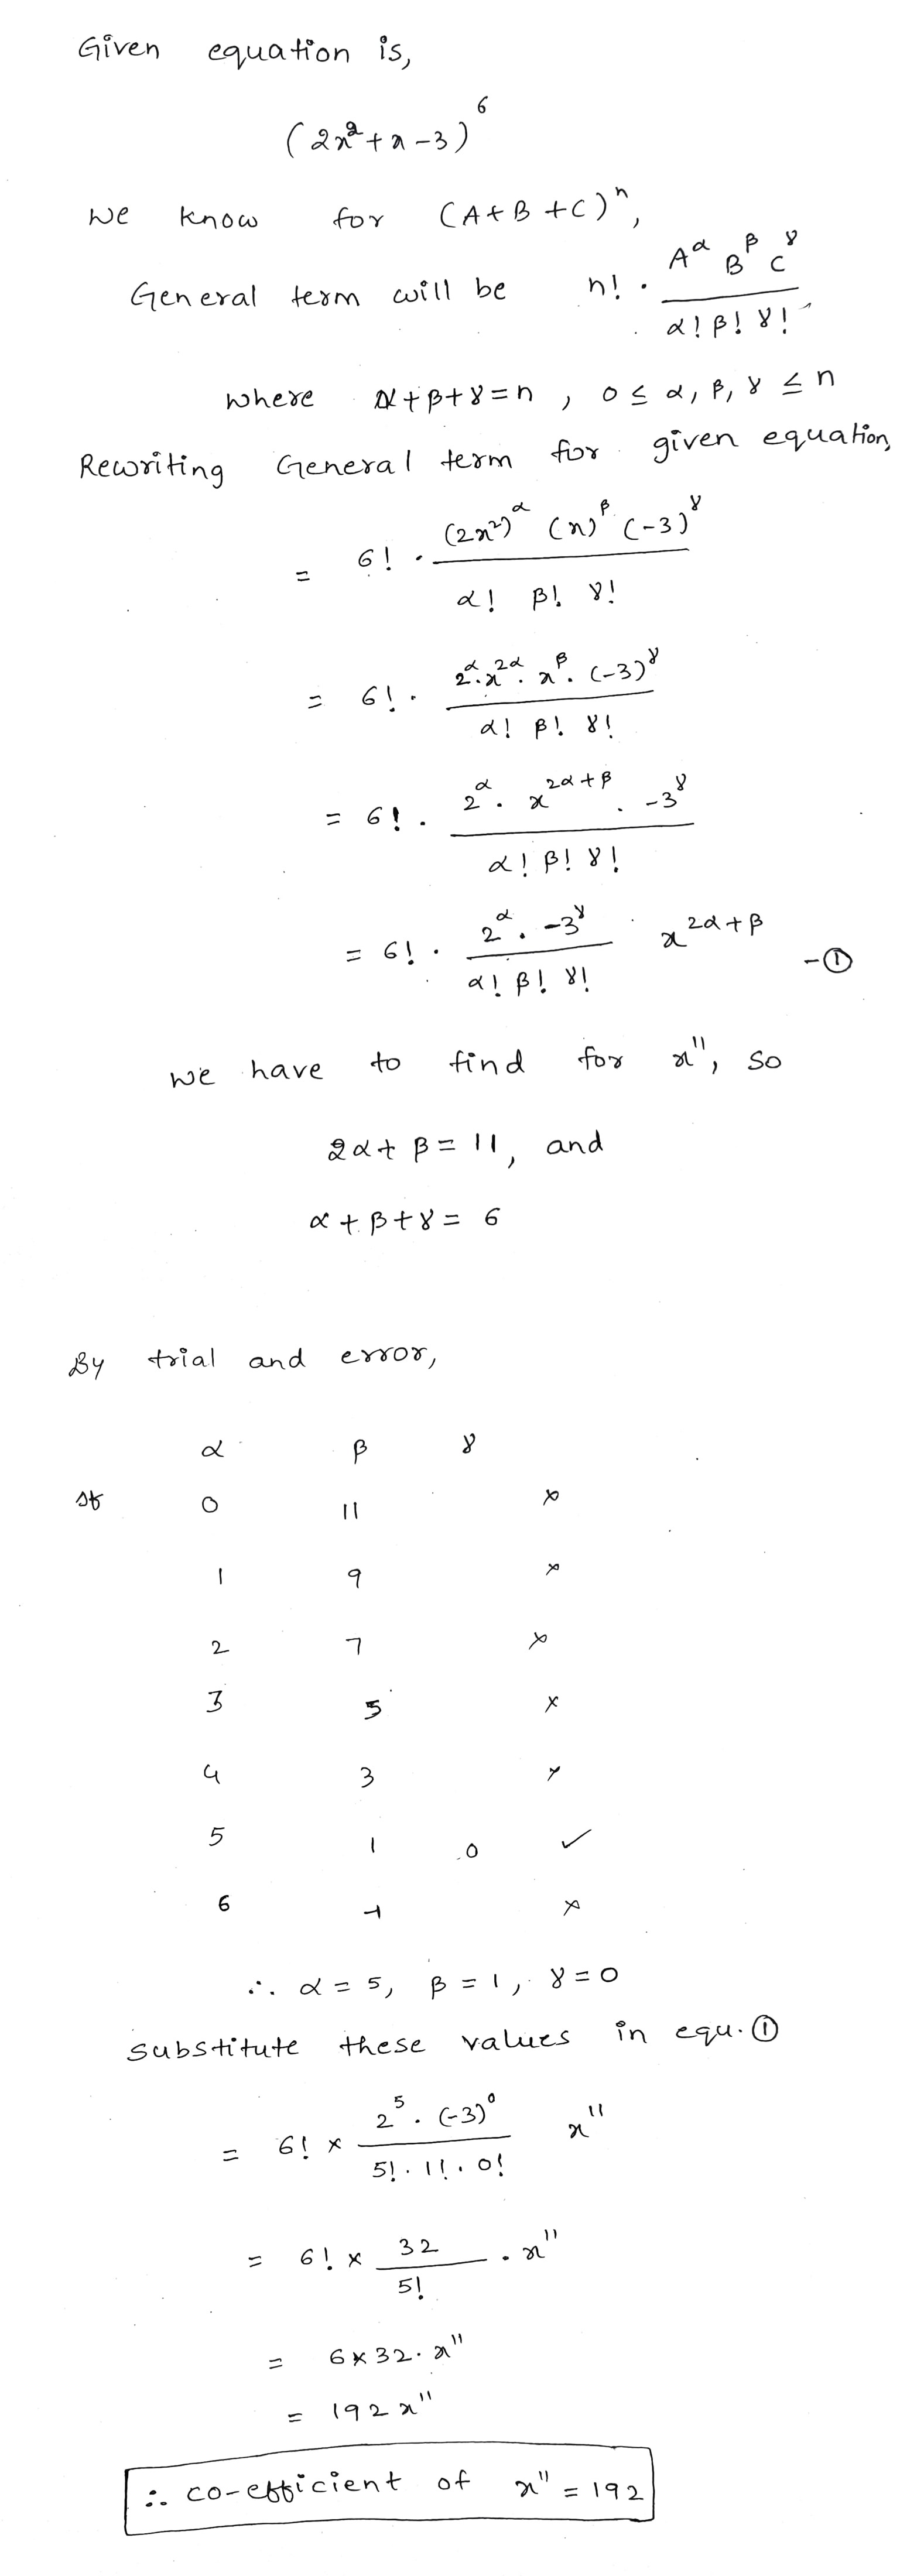 Given equation is,
(2x² + x - 3)⁶
We know for (A + B + C)ⁿ,
General term will be n! · A^α B^β C^γ / α! β! γ!
where α + β + γ = n , 0 ≤ α, β, γ ≤ n
Rewriting General term for given equation,
= 6! · (2x²)^α (x)^β (-3)^γ / α! β! γ!
= 6! · 2^α · x^2α · x^β · (-3)^γ / α! β! γ!
= 6! · 2^α · x^(2α + β) · -3^γ / α! β! γ!
= 6! · 2^α · -3^γ / α! β! γ! x^(2α + β) - ①
We have to find for x¹¹, so
2α + β = 11, and
α + β + γ = 6
By trial and error,
α β γ
If 0 11 ×
1 9 ×
2 7 ×
3 5 ×
4 3 ×
5 1 0 ✓
6 -1 ×
∴ α = 5, β = 1, γ = 0
substitute these values in equ. ①
= 6! × 2⁵ · (-3)⁰ / 5! · 1! · 0! x¹¹
= 6! × 32 / 5! · x¹¹
= 6 × 32 · x¹¹
= 192 x¹¹
∴ co-efficient of x¹¹ = 192